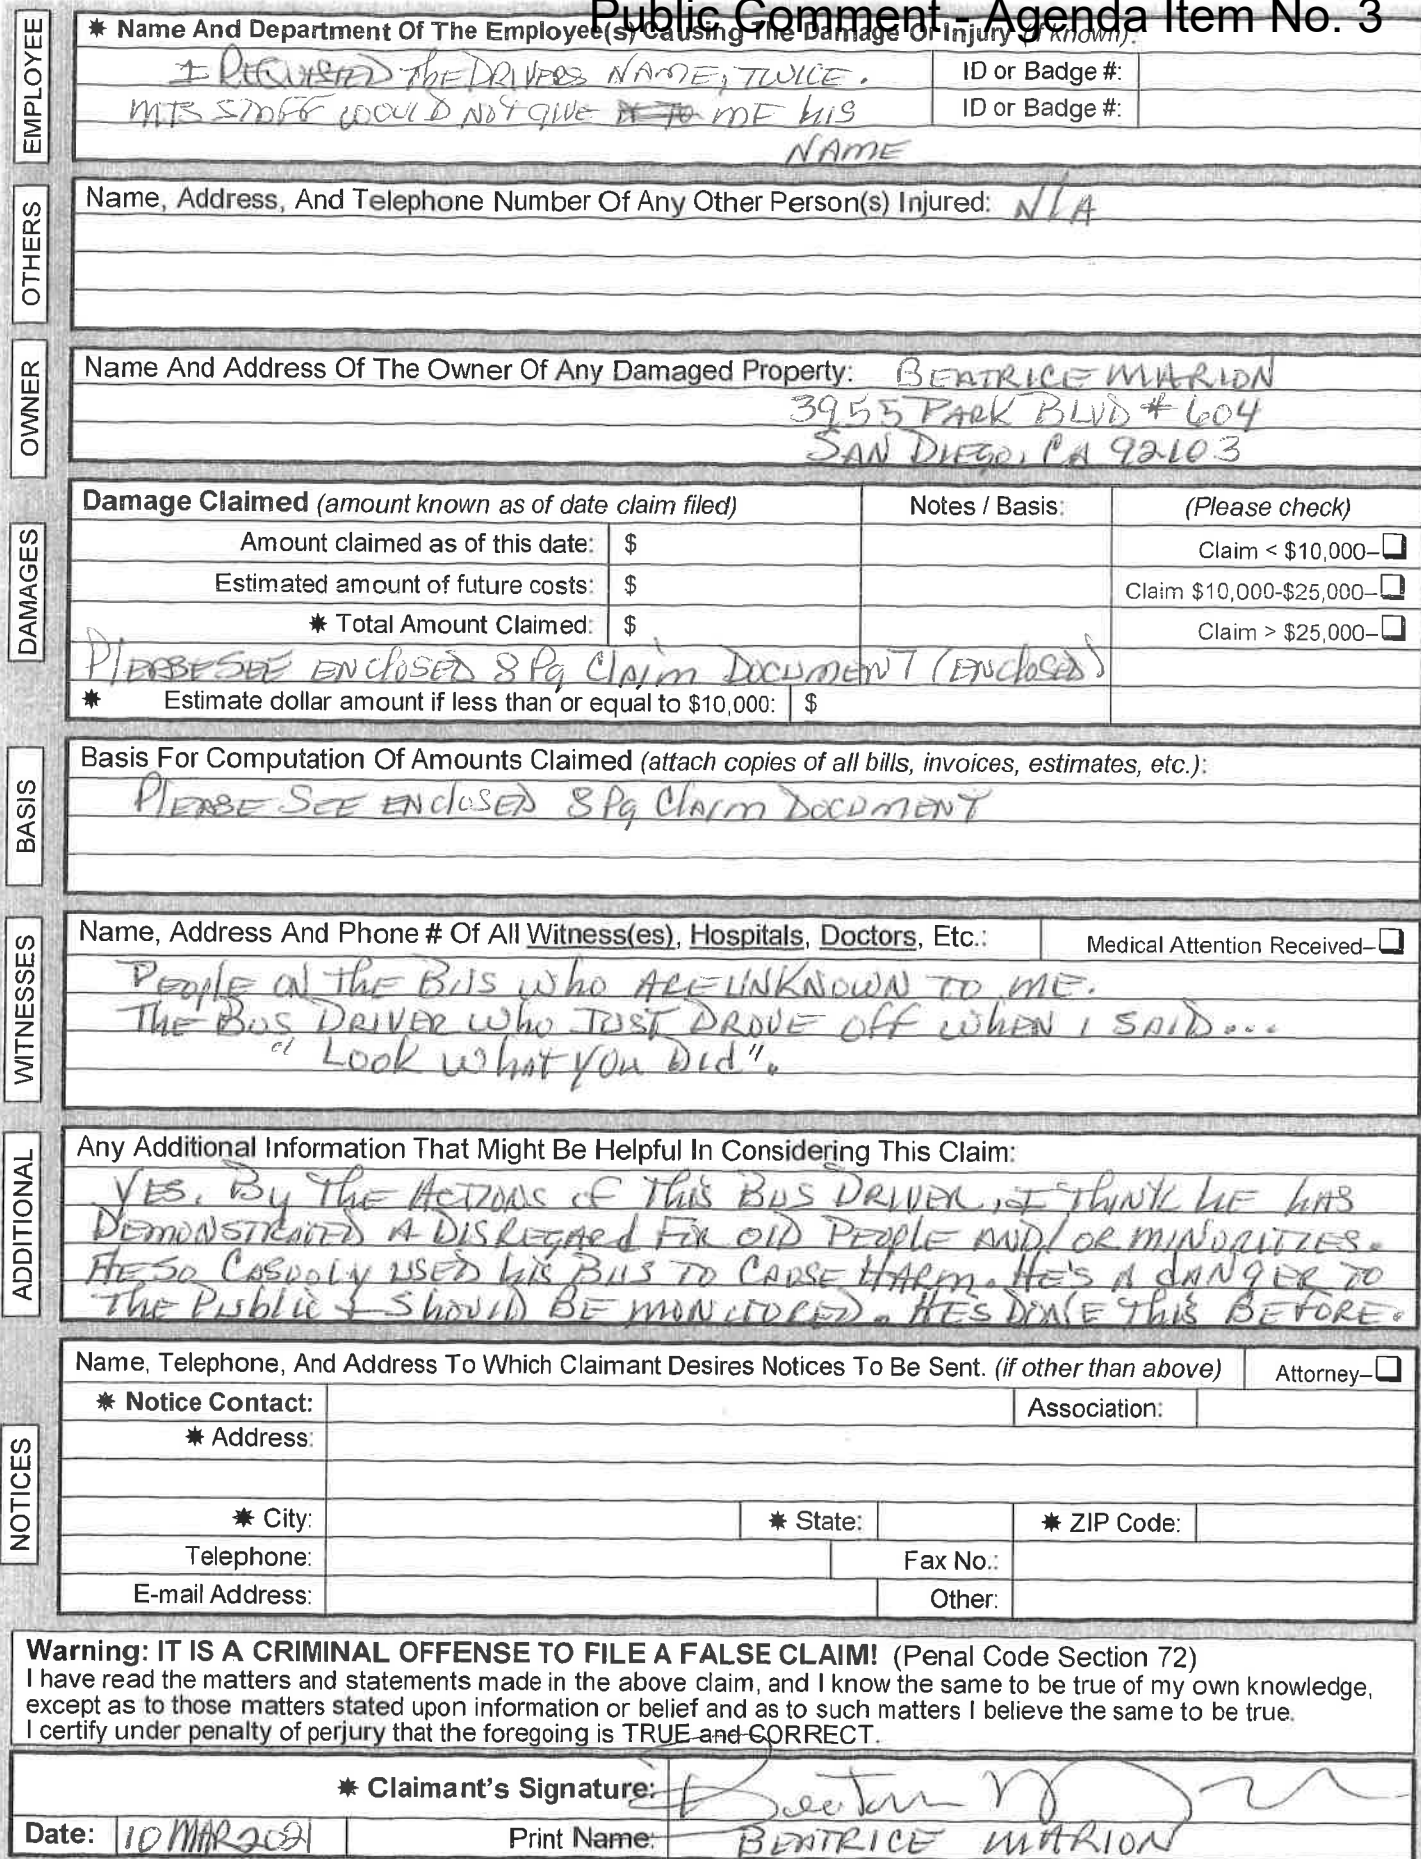 Public Comment - Agenda Item No. 3
EMPLOYEE
✷ Name And Department Of The Employee(s) Causing The Damage Or Injury (if known):
I REQUESTED THE DRIVERS NAME, TWICE.
ID or Badge #:
MTS STAFF WOULD NOT GIVE ME HIS
ID or Badge #:
NAME
OTHERS
Name, Address, And Telephone Number Of Any Other Person(s) Injured: N/A
OWNER
Name And Address Of The Owner Of Any Damaged Property: BEATRICE MARION
3955 PARK BLVD # 604
SAN DIEGO, CA 92103
DAMAGES
Damage Claimed (amount known as of date claim filed) Notes / Basis: (Please check)
Amount claimed as of this date: $ Claim < $10,000–❏
Estimated amount of future costs: $ Claim $10,000-$25,000–❏
✷ Total Amount Claimed: $ Claim > $25,000–❏
PLEASE SEE ENCLOSED 8 Pg CLAIM DOCUMENT (ENCLOSED)
✷ Estimate dollar amount if less than or equal to $10,000: $
BASIS
Basis For Computation Of Amounts Claimed (attach copies of all bills, invoices, estimates, etc.):
PLEASE SEE ENCLOSED 8 Pg CLAIM DOCUMENT
WITNESSES
Name, Address And Phone # Of All Witness(es), Hospitals, Doctors, Etc.: Medical Attention Received–❏
PEOPLE ON THE BUS WHO ARE UNKNOWN TO ME.
THE BUS DRIVER WHO JUST DROVE OFF WHEN I SAID...
"LOOK WHAT YOU DID".
ADDITIONAL
Any Additional Information That Might Be Helpful In Considering This Claim:
YES. BY THE ACTIONS OF THIS BUS DRIVER, I THINK HE HAS
DEMONSTRATED A DISREGARD FOR OLD PEOPLE AND/OR MINORITIES.
HE SO CASUALLY USED HIS BUS TO CAUSE HARM. HE'S A DANGER TO
THE PUBLIC & SHOULD BE MONITORED. HE'S DONE THIS BEFORE.
NOTICES
Name, Telephone, And Address To Which Claimant Desires Notices To Be Sent. (if other than above) Attorney–❏
✷ Notice Contact: Association:
✷ Address:
✷ City: ✷ State: ✷ ZIP Code:
Telephone: Fax No.:
E-mail Address: Other:
Warning: IT IS A CRIMINAL OFFENSE TO FILE A FALSE CLAIM! (Penal Code Section 72)
I have read the matters and statements made in the above claim, and I know the same to be true of my own knowledge,
except as to those matters stated upon information or belief and as to such matters I believe the same to be true.
I certify under penalty of perjury that the foregoing is TRUE and CORRECT.
✷ Claimant's Signature:
Date: 10 MAR 2021 Print Name: BEATRICE MARION